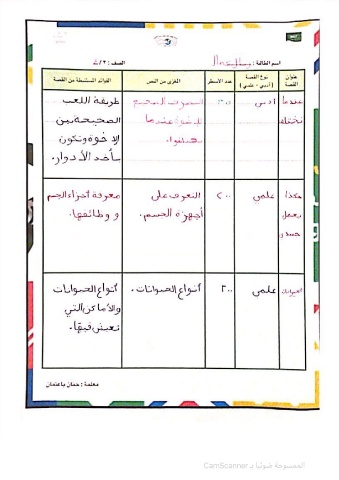 اسم الطالبة :
الصف : ٢ /
عنوان القصة
نوع القصة ( أدبي - علمي )
عدد الأسطر
المغزى من النص
الفوائد المستنبطة من القصة
عندما
نختلف
أدبي
التصرف الصحيح
للإخوة عندما
يختلفوا.
طريقة اللعب
الصحيحة بين
الإخوة وتكون
بأخذ الأدوار.
هكذا
يعمل
جسدي
علمي
٢٠٠
التعرف على
أجهزة الجسم.
معرفة أجزاء الجسم
و وظائفها.
علمي
٢٠٠
أنواع الحيوانات .
أنواع الحيوانات
والأماكن التي
تعيش فيها.
معلمة : حنان باعثمان
الممسوحة ضوئيا بـ CamScanner